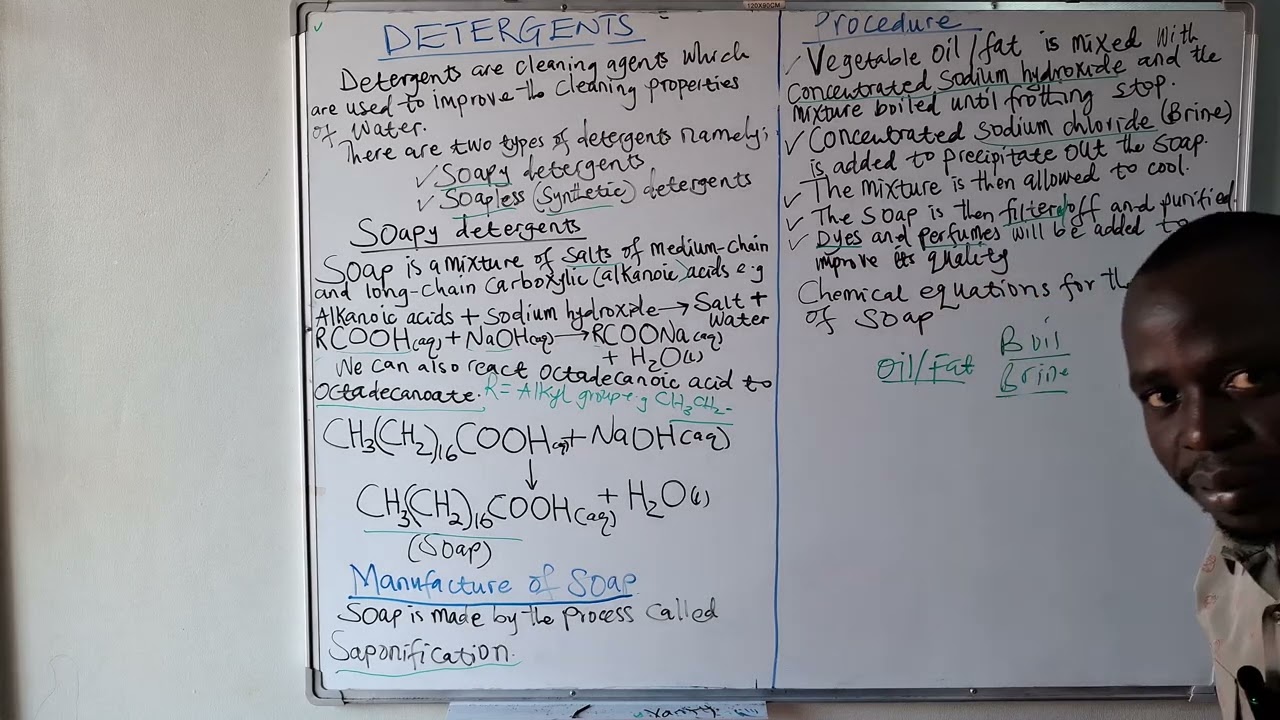 120X90CM
DETERGENTS
Detergents are cleaning agents which
are used to improve the cleaning properties
of water.
There are two types of detergents namely;
✓ Soapy detergents
✓ Soapless (Synthetic) detergents
Soapy detergents
Soap is a mixture of salts of medium-chain
and long-chain carboxylic (alkanoic) acids e.g
Alkanoic acids + Sodium hydroxide → Salt +
Water
RCOOH(aq) + NaOH(aq) → RCOONa(aq)
+ H₂O(l)
We can also react Octadecanoic acid to
Octadecanoate. R = Alkyl group e.g CH₃CH₂-
CH₃(CH₂)₁₆COOH(aq) + NaOH(aq)
↓
CH₃(CH₂)₁₆COOH(aq) + H₂O(l)
(Soap)
Manufacture of Soap
Soap is made by the process called
Saponification.
Procedure
✓ Vegetable oil/fat is mixed with
Concentrated Sodium hydroxide and the
mixture boiled until frothing stop.
✓ Concentrated Sodium chloride (Brine)
is added to precipitate out the soap.
✓ The mixture is then allowed to cool.
✓ The soap is then filter off and purified
✓ Dyes and perfumes will be added to
improve its quality
Chemical equations for th
of Soap
Oil/Fat Boil
Brine